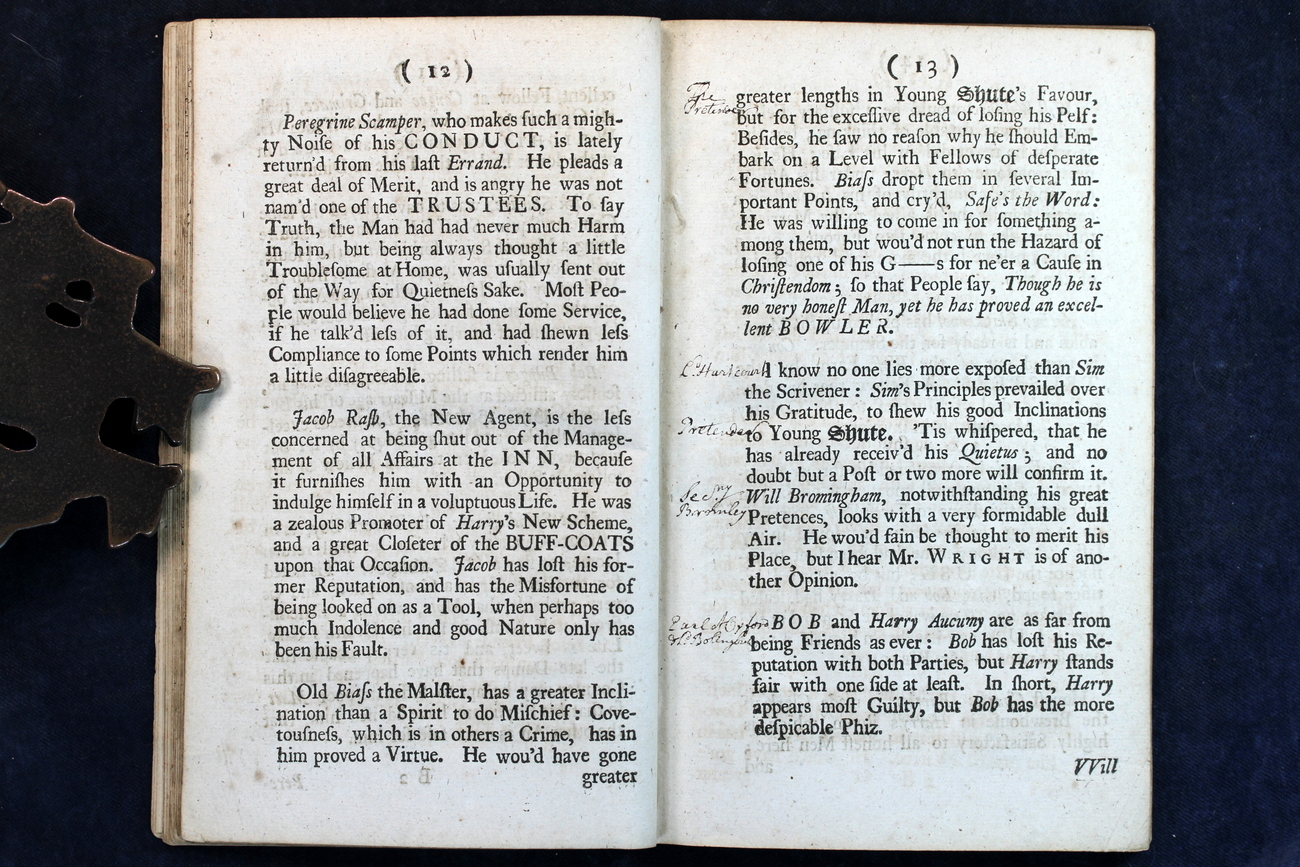 ( 12 )
Peregrine Scamper, who makes ſuch a migh-
ty Noiſe of his CONDUCT, is lately
return'd from his laſt Errand. He pleads a
great deal of Merit, and is angry he was not
nam'd one of the TRUSTEES. To ſay
Truth, the Man had had never much Harm
in him, but being always thought a little
Troubleſome at Home, was uſually ſent out
of the Way for Quietneſs Sake. Moſt Peo-
ple would believe he had done ſome Service,
if he talk'd leſs of it, and had ſhewn leſs
Compliance to ſome Points which render him
a little diſagreeable.
Jacob Raſh, the New Agent, is the leſs
concerned at being ſhut out of the Manage-
ment of all Affairs at the INN, becauſe
it furniſhes him with an Opportunity to
indulge himſelf in a voluptuous Life. He was
a zealous Promoter of Harry's New Scheme,
and a great Cloſeter of the BUFF-COATS
upon that Occaſion. Jacob has loſt his for-
mer Reputation, and has the Misfortune of
being looked on as a Tool, when perhaps too
much Indolence and good Nature only has
been his Fault.
Old Biaſs the Malſter, has a greater Incli-
nation than a Spirit to do Miſchief: Cove-
touſneſs, which is in others a Crime, has in
him proved a Virtue. He wou'd have gone
B 2
greater
( 13 )
The
Pretender
greater lengths in Young Shute's Favour,
but for the exceſſive dread of loſing his Pelf:
Beſides, he ſaw no reaſon why he ſhould Em-
bark on a Level with Fellows of deſperate
Fortunes. Biaſs dropt them in ſeveral Im-
portant Points, and cry'd, Safe's the Word:
He was willing to come in for ſomething a-
mong them, but wou'd not run the Hazard of
loſing one of his G——s for ne'er a Cauſe in
Chriſtendom; ſo that People ſay, Though he is
no very honeſt Man, yet he has proved an excel-
lent BOWLER.
L. Harcourt
I know no one lies more expoſed than Sim
the Scrivener: Sim's Principles prevailed over
his Gratitude, to ſhew his good Inclinations
Pretender
to Young Shute. 'Tis whiſpered, that he
has already receiv'd his Quietus; and no
doubt but a Poſt or two more will confirm it.
Secry
Bromley
Will Bromingham, notwithſtanding his great
Pretences, looks with a very formidable dull
Air. He wou'd fain be thought to merit his
Place, but I hear Mr. WRIGHT is of ano-
ther Opinion.
Earl of Oxford
BOB and Harry Aucumy are as far from
being Friends as ever: Bob has loſt his Re-
putation with both Parties, but Harry ſtands
fair with one ſide at leaſt. In ſhort, Harry
appears moſt Guilty, but Bob has the more
deſpicable Phiz.
VVill